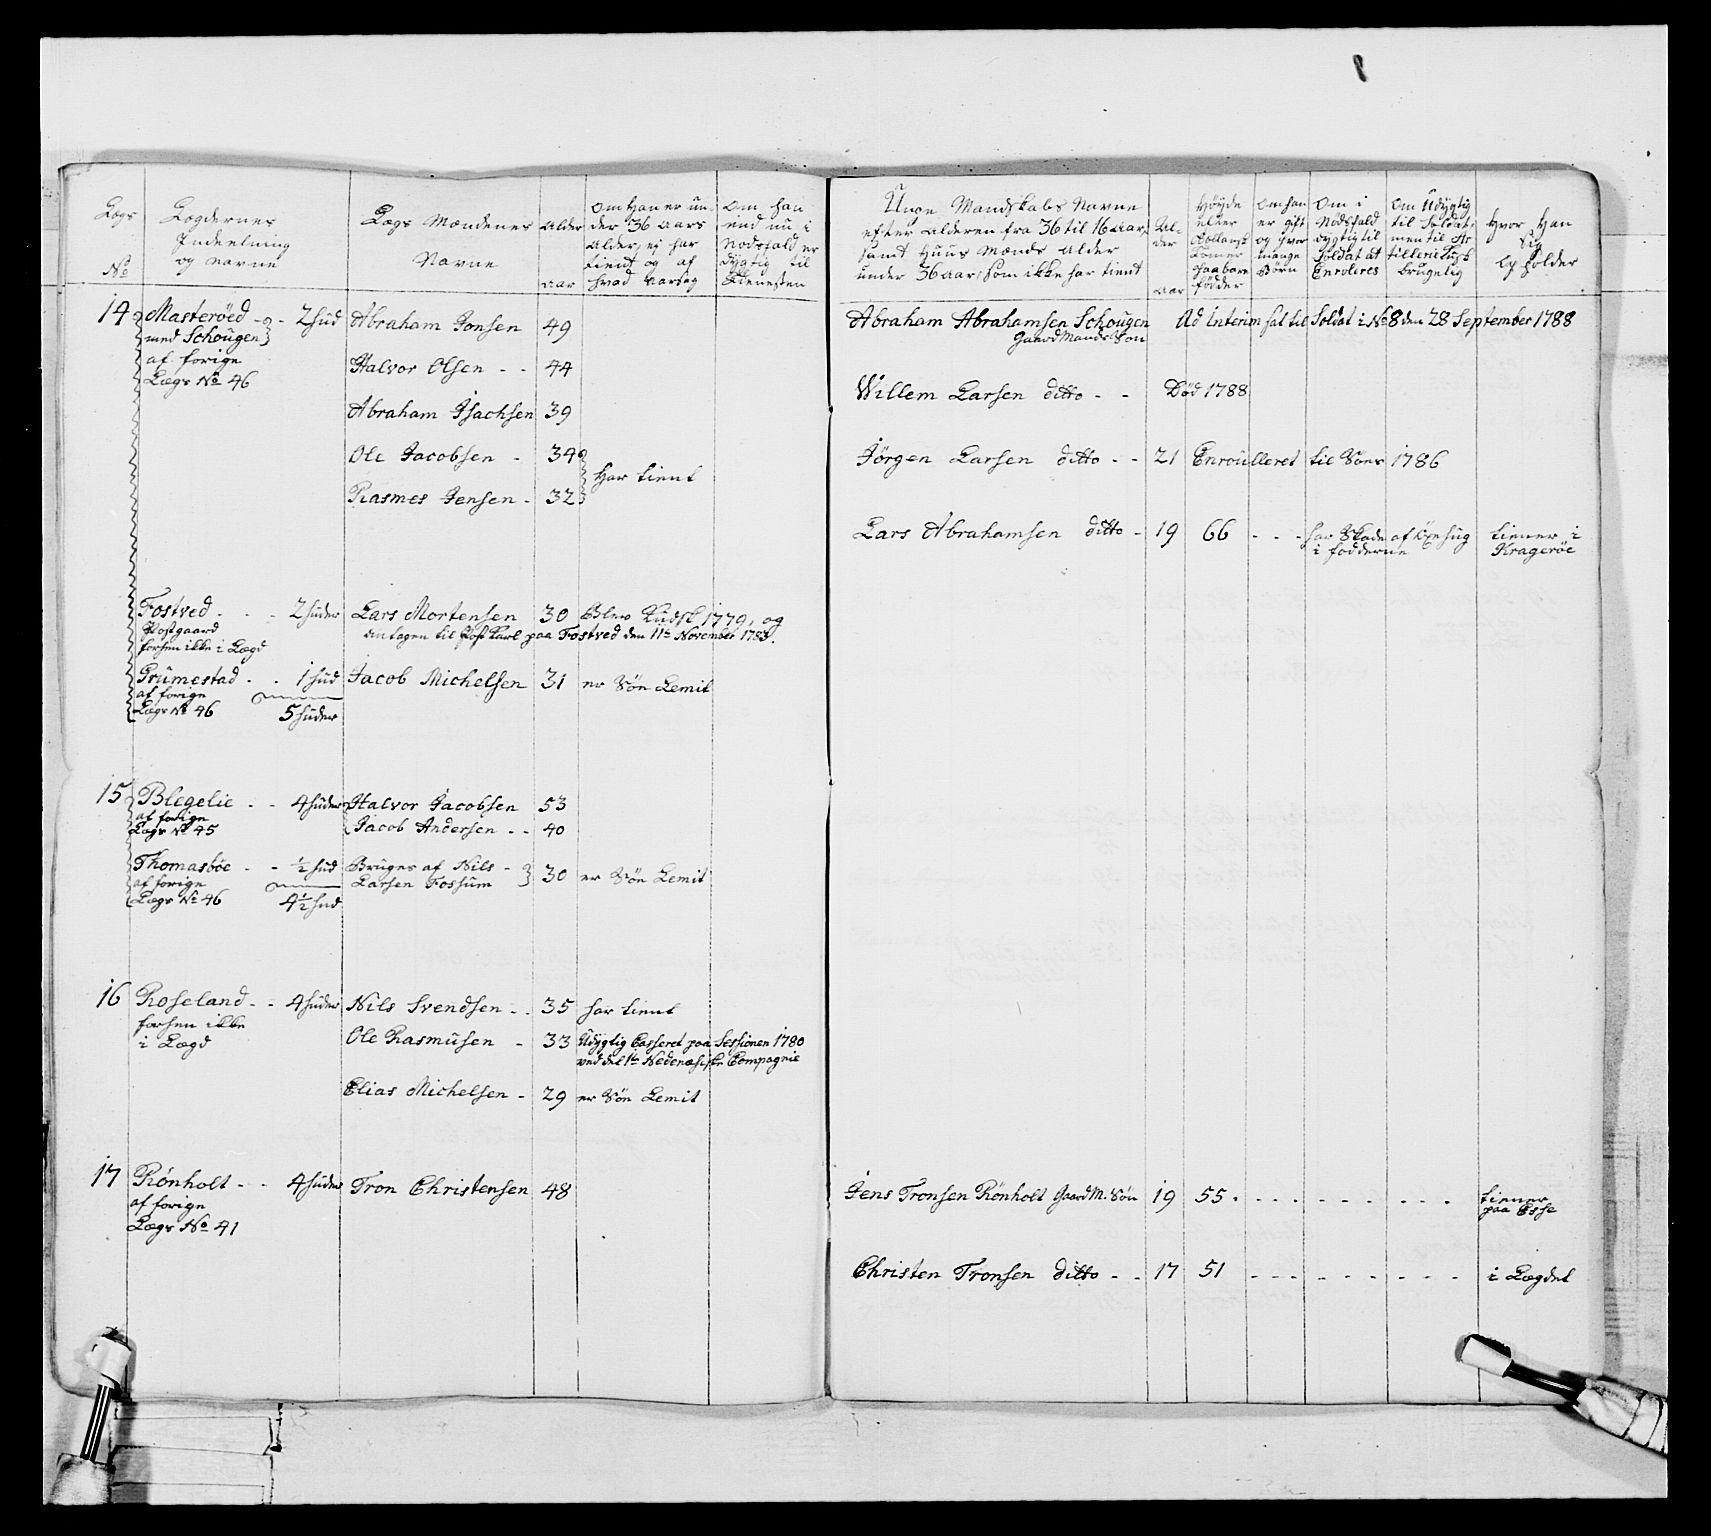 Lægs
No
Lægdernes
Indeelning
og navne
Lægs Mændenes
Navne
Alder
aar
Om Han er un-
der 36 aars
Alder, ej har
tient og af
hvad aarsag
Om han
end nu i
Nødsfald er
dygtig til
Tienesten
Unge Mandskabs Navne
efter Alderen fra 36 til 16 Aar,
samt Huus Mænds Alder
under 36 aar, som ikke har tient
Al-
der
aar
Høyde
efter
Tomer
paa bare
fødder
Om han
er gift
og hvor
mange
Børn
Om i
Nødsfald
dygtig til
Soldat at
Enroleres
Om Udygtig
til Soldat,
men til Ar-
tillerie Kusk
brugelig
Hvor Han
sig
opholder
14 Masterøed - - 2 hud
med Schougen
af forige
Lægs No 46
Abraham Jonsen 49
Halvor Olsen - - 44
Abraham Isachsen 39
Ole Jacobsen - 34
Rasmes Jensen - 32
Har tient
Abraham Abrahamsen Schougen Ad Interim sat til Soldat i No 8 den 28 September 1788
Gaard Mands Søn
Willem Larsen ditto - - Død 1788
Jørgen Larsen ditto - - 21 Enroulleret til Søes 1786
Lars Abrahamsen ditto - 19 66 - - - har Skade af Øxehug tiener i
i fødderne Kragerøe
Fostved - - - 2 huder Lars Mortensen 30 Blev Kudsk 1779, og
Postgaard antagen til Post Karl paa Fostved den 11te November 1783.
forhen ikke i Lægd
Grumestad - - 1 hud Jacob Michelsen 31 er Søe Lemit
af forige
Lægs No 46 5 huder
15 Blegelie - - 4 huder Halvor Jacobsen 53
af forige
Lægs No 45 Jacob Andersen - - 40
Thomasbøe - - ½ hud Bruges af Nils - 30 er Søe Lemit
af forige Larsen Fossum
Lægs No 46 4½ hud
16 Roseland - - 4 huder Nils Svendsen - - 35 har tient
forhen ikke
i Lægd
Ole Rasmusen - 33 Udygtig Casseret paa Sessionen 1780
ved det 1te Nedenæsiske Compagnie
Elias Michelsen - 29 er Søe Lemit
17 Rønholt - - 4 huder Tron Christensen 48
af forige
Lægs No 41
Jens Tronsen Rønholt Gaard M. Søn 19 55 - - - - - - - - - tiener
paa Esse
Christen Tronsen ditto - - 17 51 - - - - - - - - i Lægdet